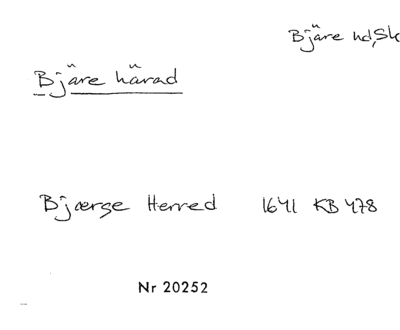 Bjäre hd, Sk
Bjäre härad
Bjærge Herred 1641 KB 478
Nr 20252